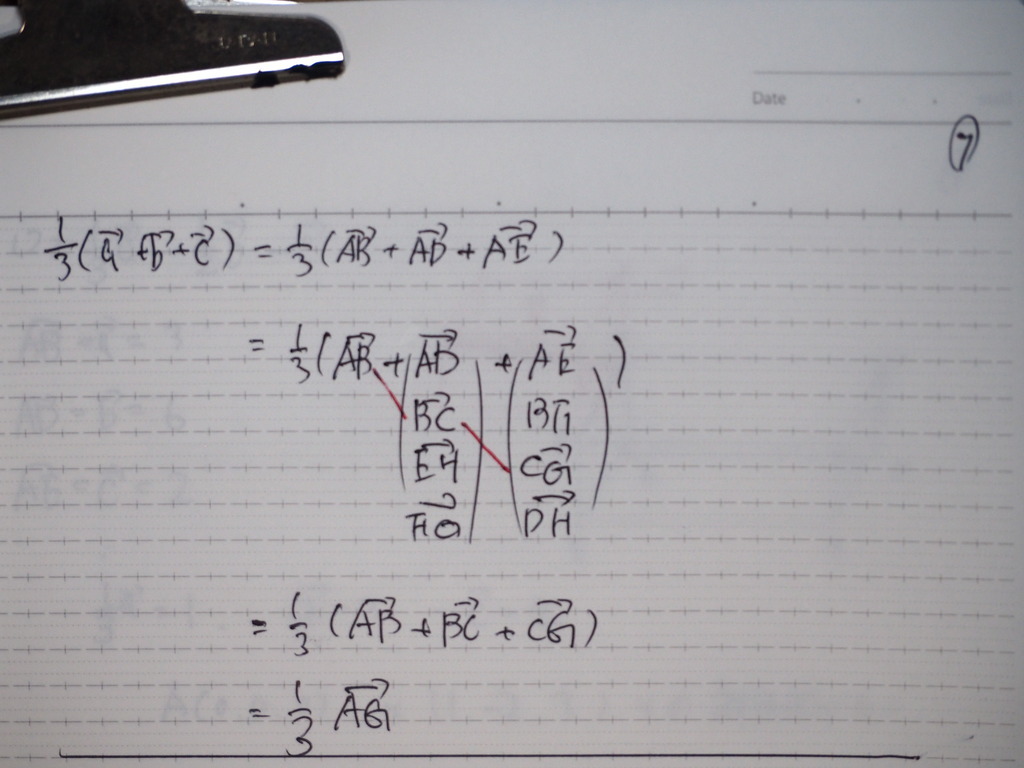 Date
⑦
1/3(a⃗ + b⃗ + c⃗) = 1/3(AB⃗ + AD⃗ + AE⃗)
= 1/3(AB⃗ + AD⃗ + AE⃗)
BC⃗ BG
EH⃗ CG⃗
FG⃗ DH⃗
= 1/3(AB⃗ + BC⃗ + CG⃗)
= 1/3 AG⃗